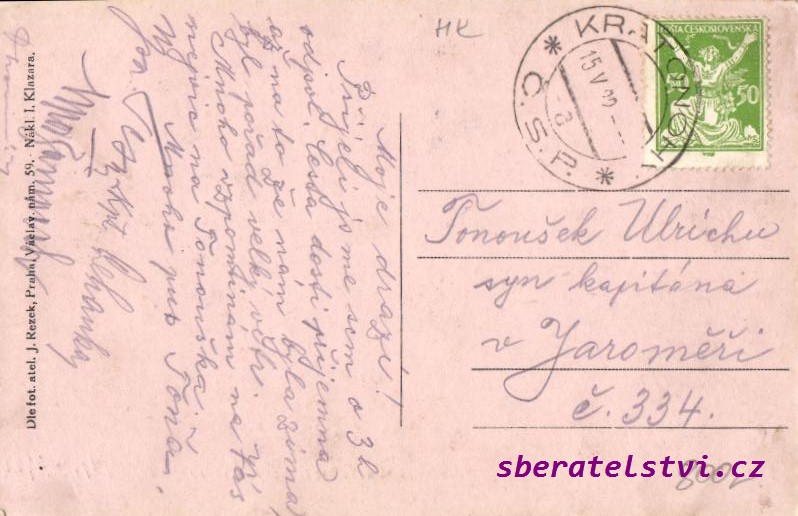 HK
KRATONOHY
15 V 22
Č.S.P.
POŠTA ČESKOSLOVENSKÁ
50 50
Moje drazí!
Přijeli jsme sem o 3 h
odpol. Cesta dosti příjemna
až na to že nám byla zima
byl pořád velký vítr.
Mnoho vzpomínám na Vás
nejvíc na Tonouška.
Mnoho pus Tóna.
Tonoušek Ulrichu
syn kapitána
v Jaroměři
č. 334.
Dle fot. atel. J. Rezek, Praha, Václav. nám. 59. - Nákl. I. Klazara.
8002
sberatelstvi.cz